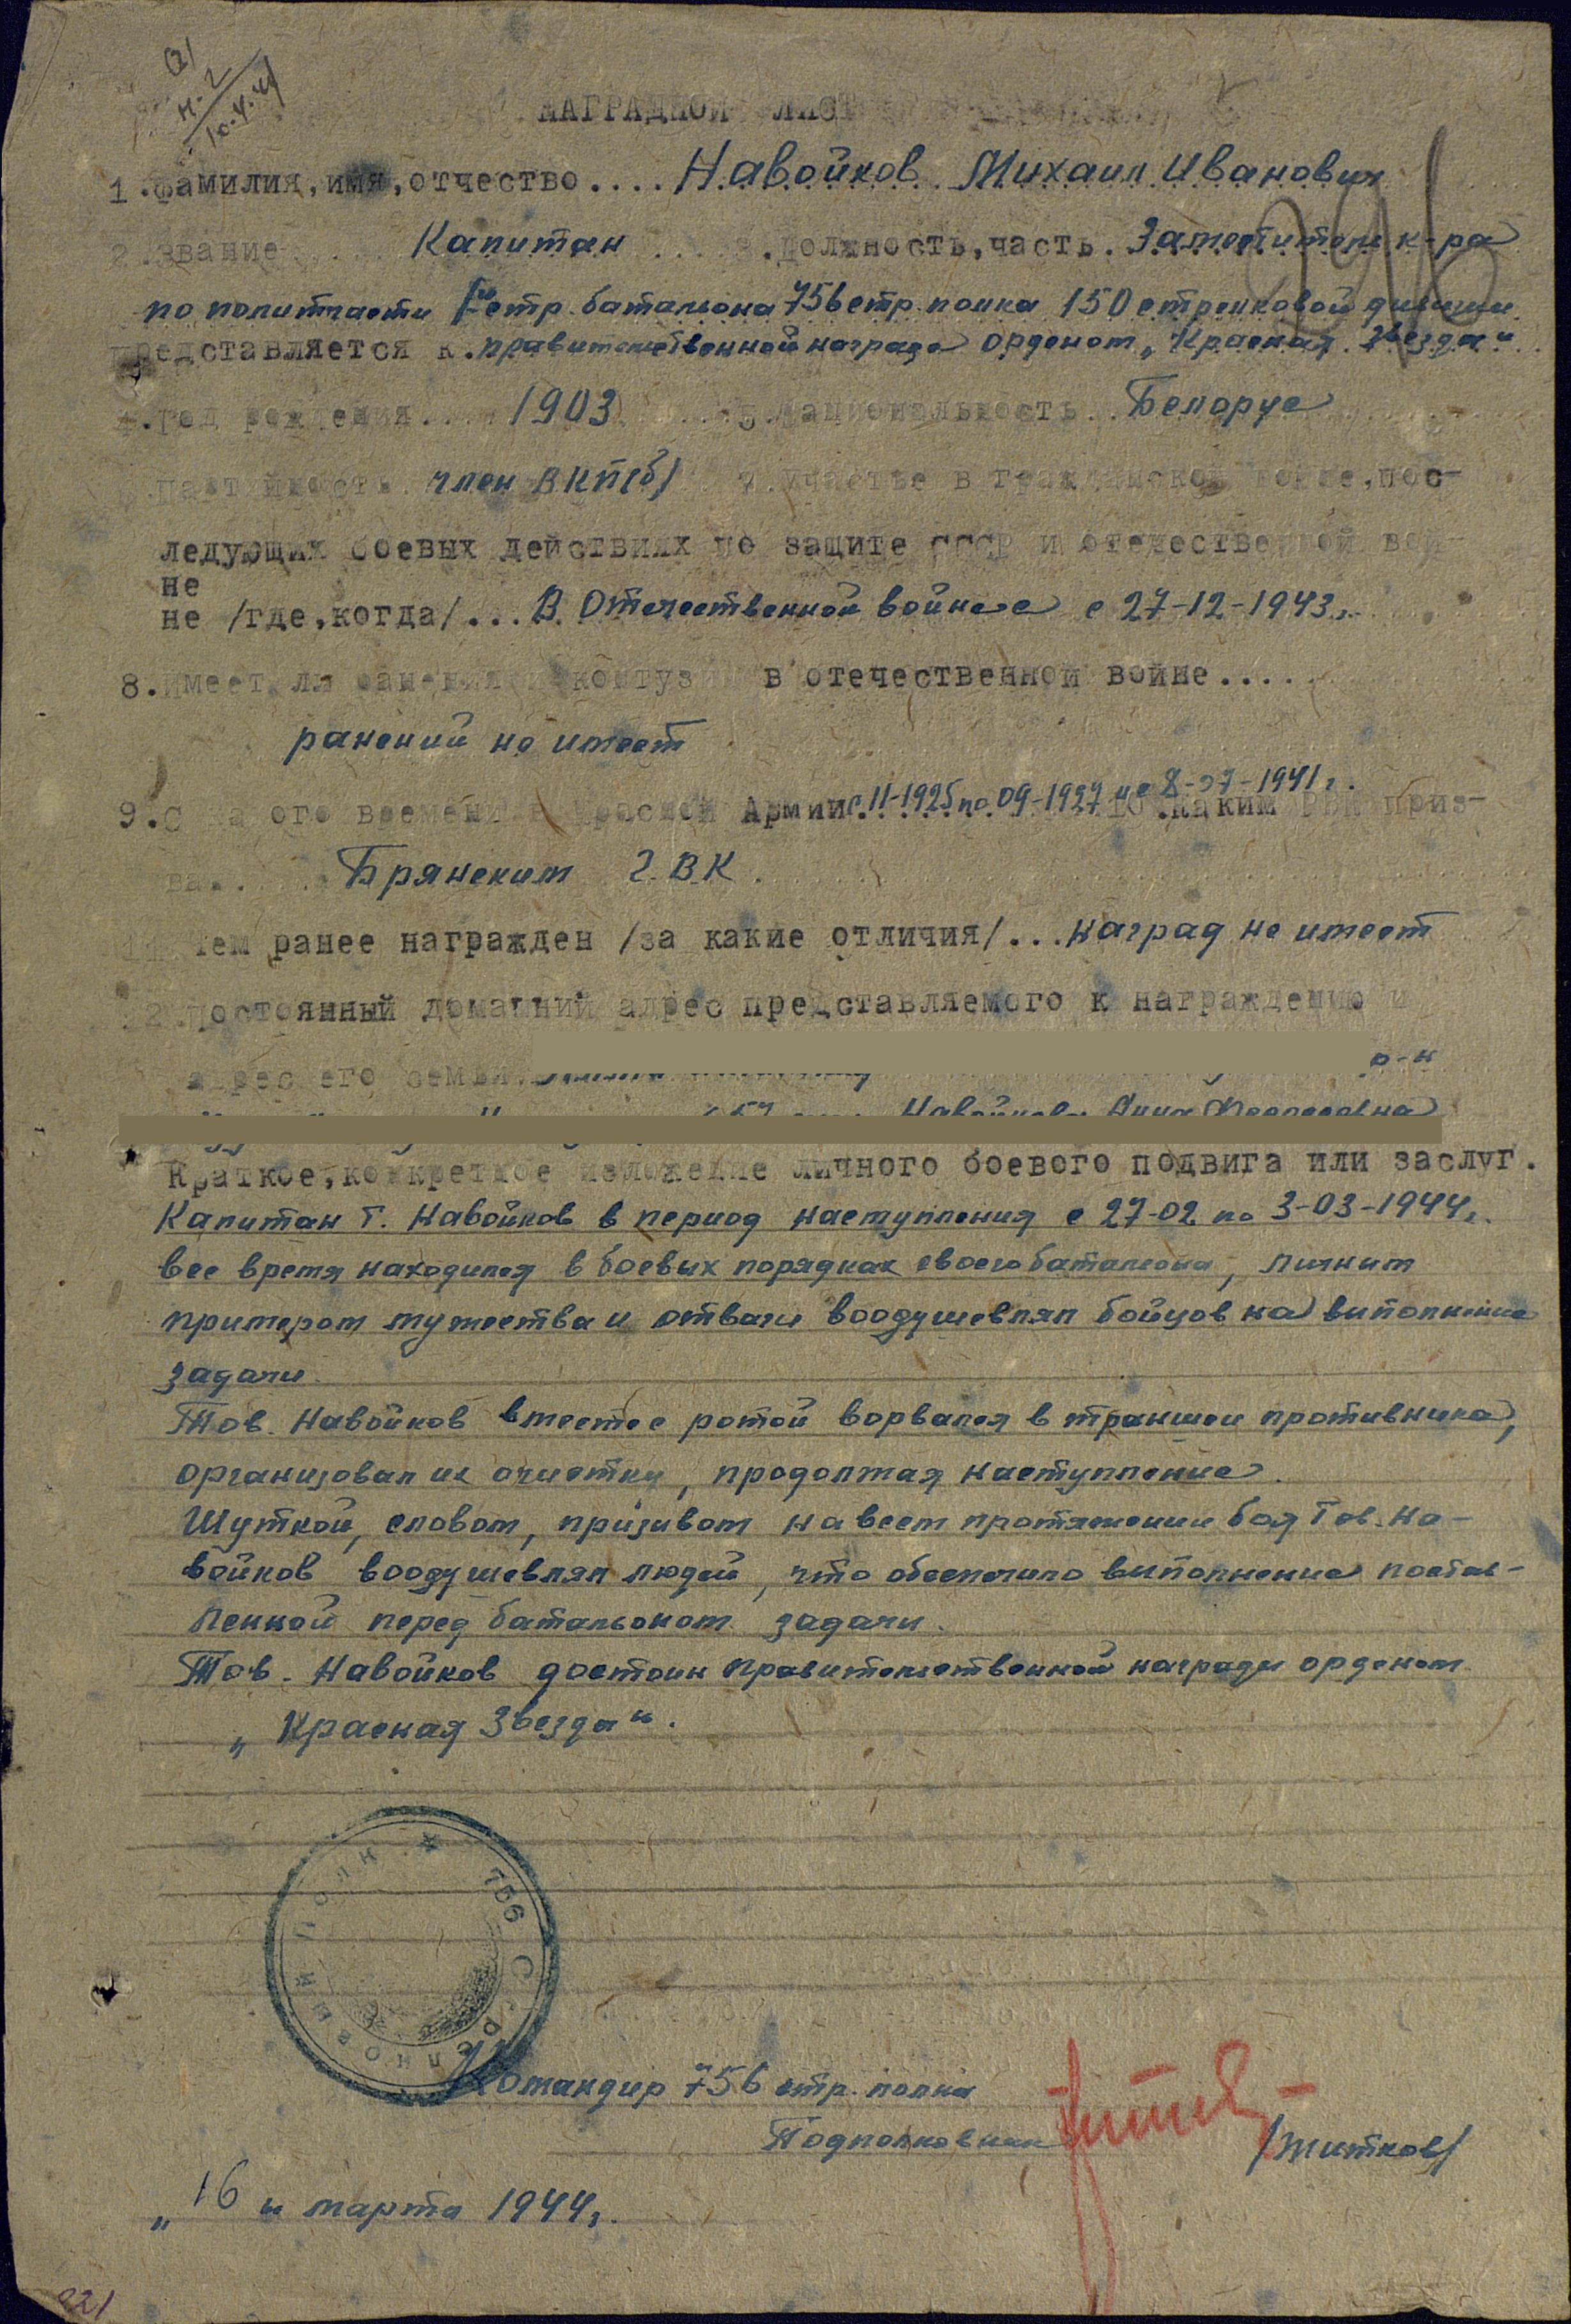 НАГРАДНОЙ ЛИСТ
1.Фамилия,имя,отчество.... Навойков Михаил Иванович
2.Звание Капитан 3.должность,часть. Заместитель к-ра
по политчасти стр. батальона 756 стр. полка 150 стрелковой дивизии
представляется к правительственной награде орденом „Красная Звезда"
4.год рождения.... 1903 5.национальность.. Белорус
6.партийность член ВКП(б) 7.участье в гражданской войне,пос-
ледующих боевых действиях по защите СССР и отечественной вой-
не
не /где,когда/... В Отечественной войне с 27-12-1943г.
8.имеет ли ранения и контузии в отечественной войне....
ранений не имеет
9.С какого времени в Красной Армии с 11-1925 по 09-1927 и с 8-07-1941г. 10.каким РВК приз-
ван..... Брянским Г.В.К
11.Чем ранее награжден /за какие отличия/... наград не имеет
12.постоянный домашний адрес представляемого к награждению и
адрес его семьи. р-н
Навойкова Анна
Краткое,конкретное изложение личного боевого подвига или заслуг.
Капитан т. Навойков в период наступления с 27-02 по 3-03-1944г.
все время находился в боевых порядках своего батальона, личным
примером мужества и отваги воодушевлял бойцов на выполнение
задачи.
Тов. Навойков вместе с ротой ворвался в траншеи противника,
организовал их очистку, продолжая наступление.
Шуткой, словом, призывом на всем протяжении боя Тов. На-
войков воодушевлял людей, что обеспечило выполнение постав-
ленной перед батальоном задачи.
Тов. Навойков достоин правительственной награды орденом
„Красная Звезда".
756 СТРЕЛКОВЫЙ ПОЛК
Командир 756 стр. полка
Подполковник /Житков/
„16" марта 1944г.
221